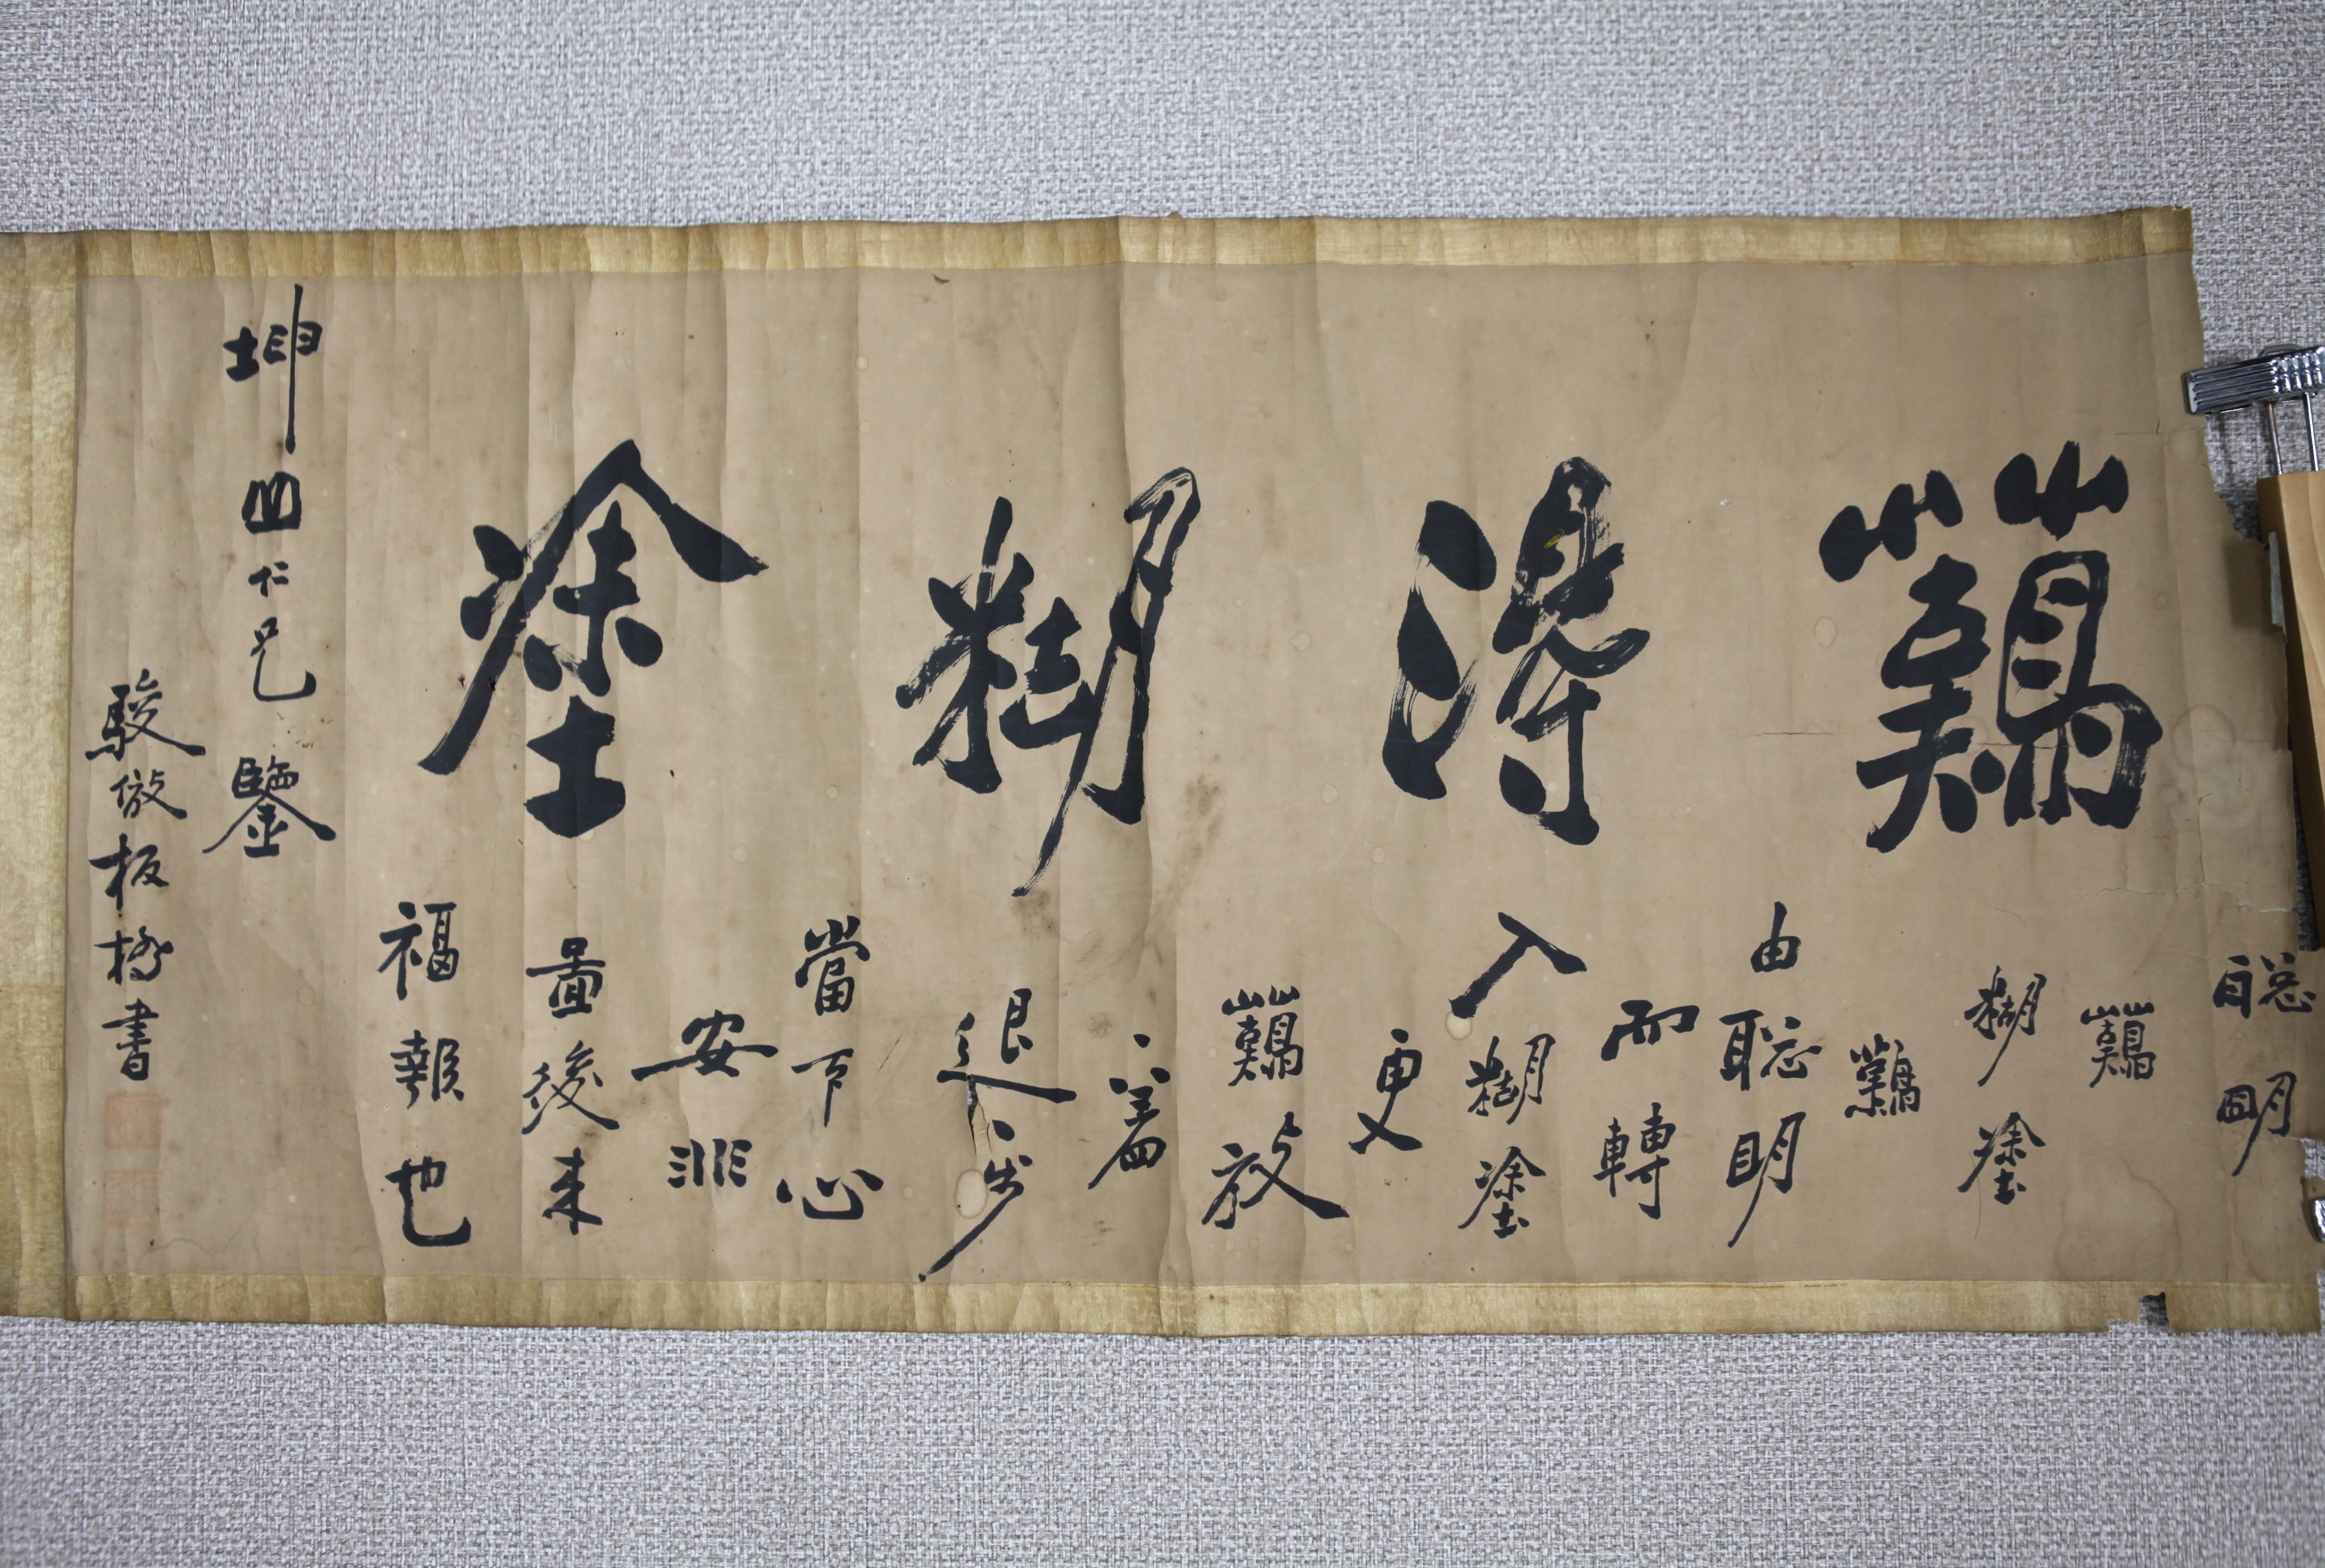 難得糊塗
聰明
難
糊塗
難
由聰明
而轉
入糊塗
更
難放
一著
退一步
當下心
安非
圖後来
福報也
坤仁兄鑒
駿倣板橋書